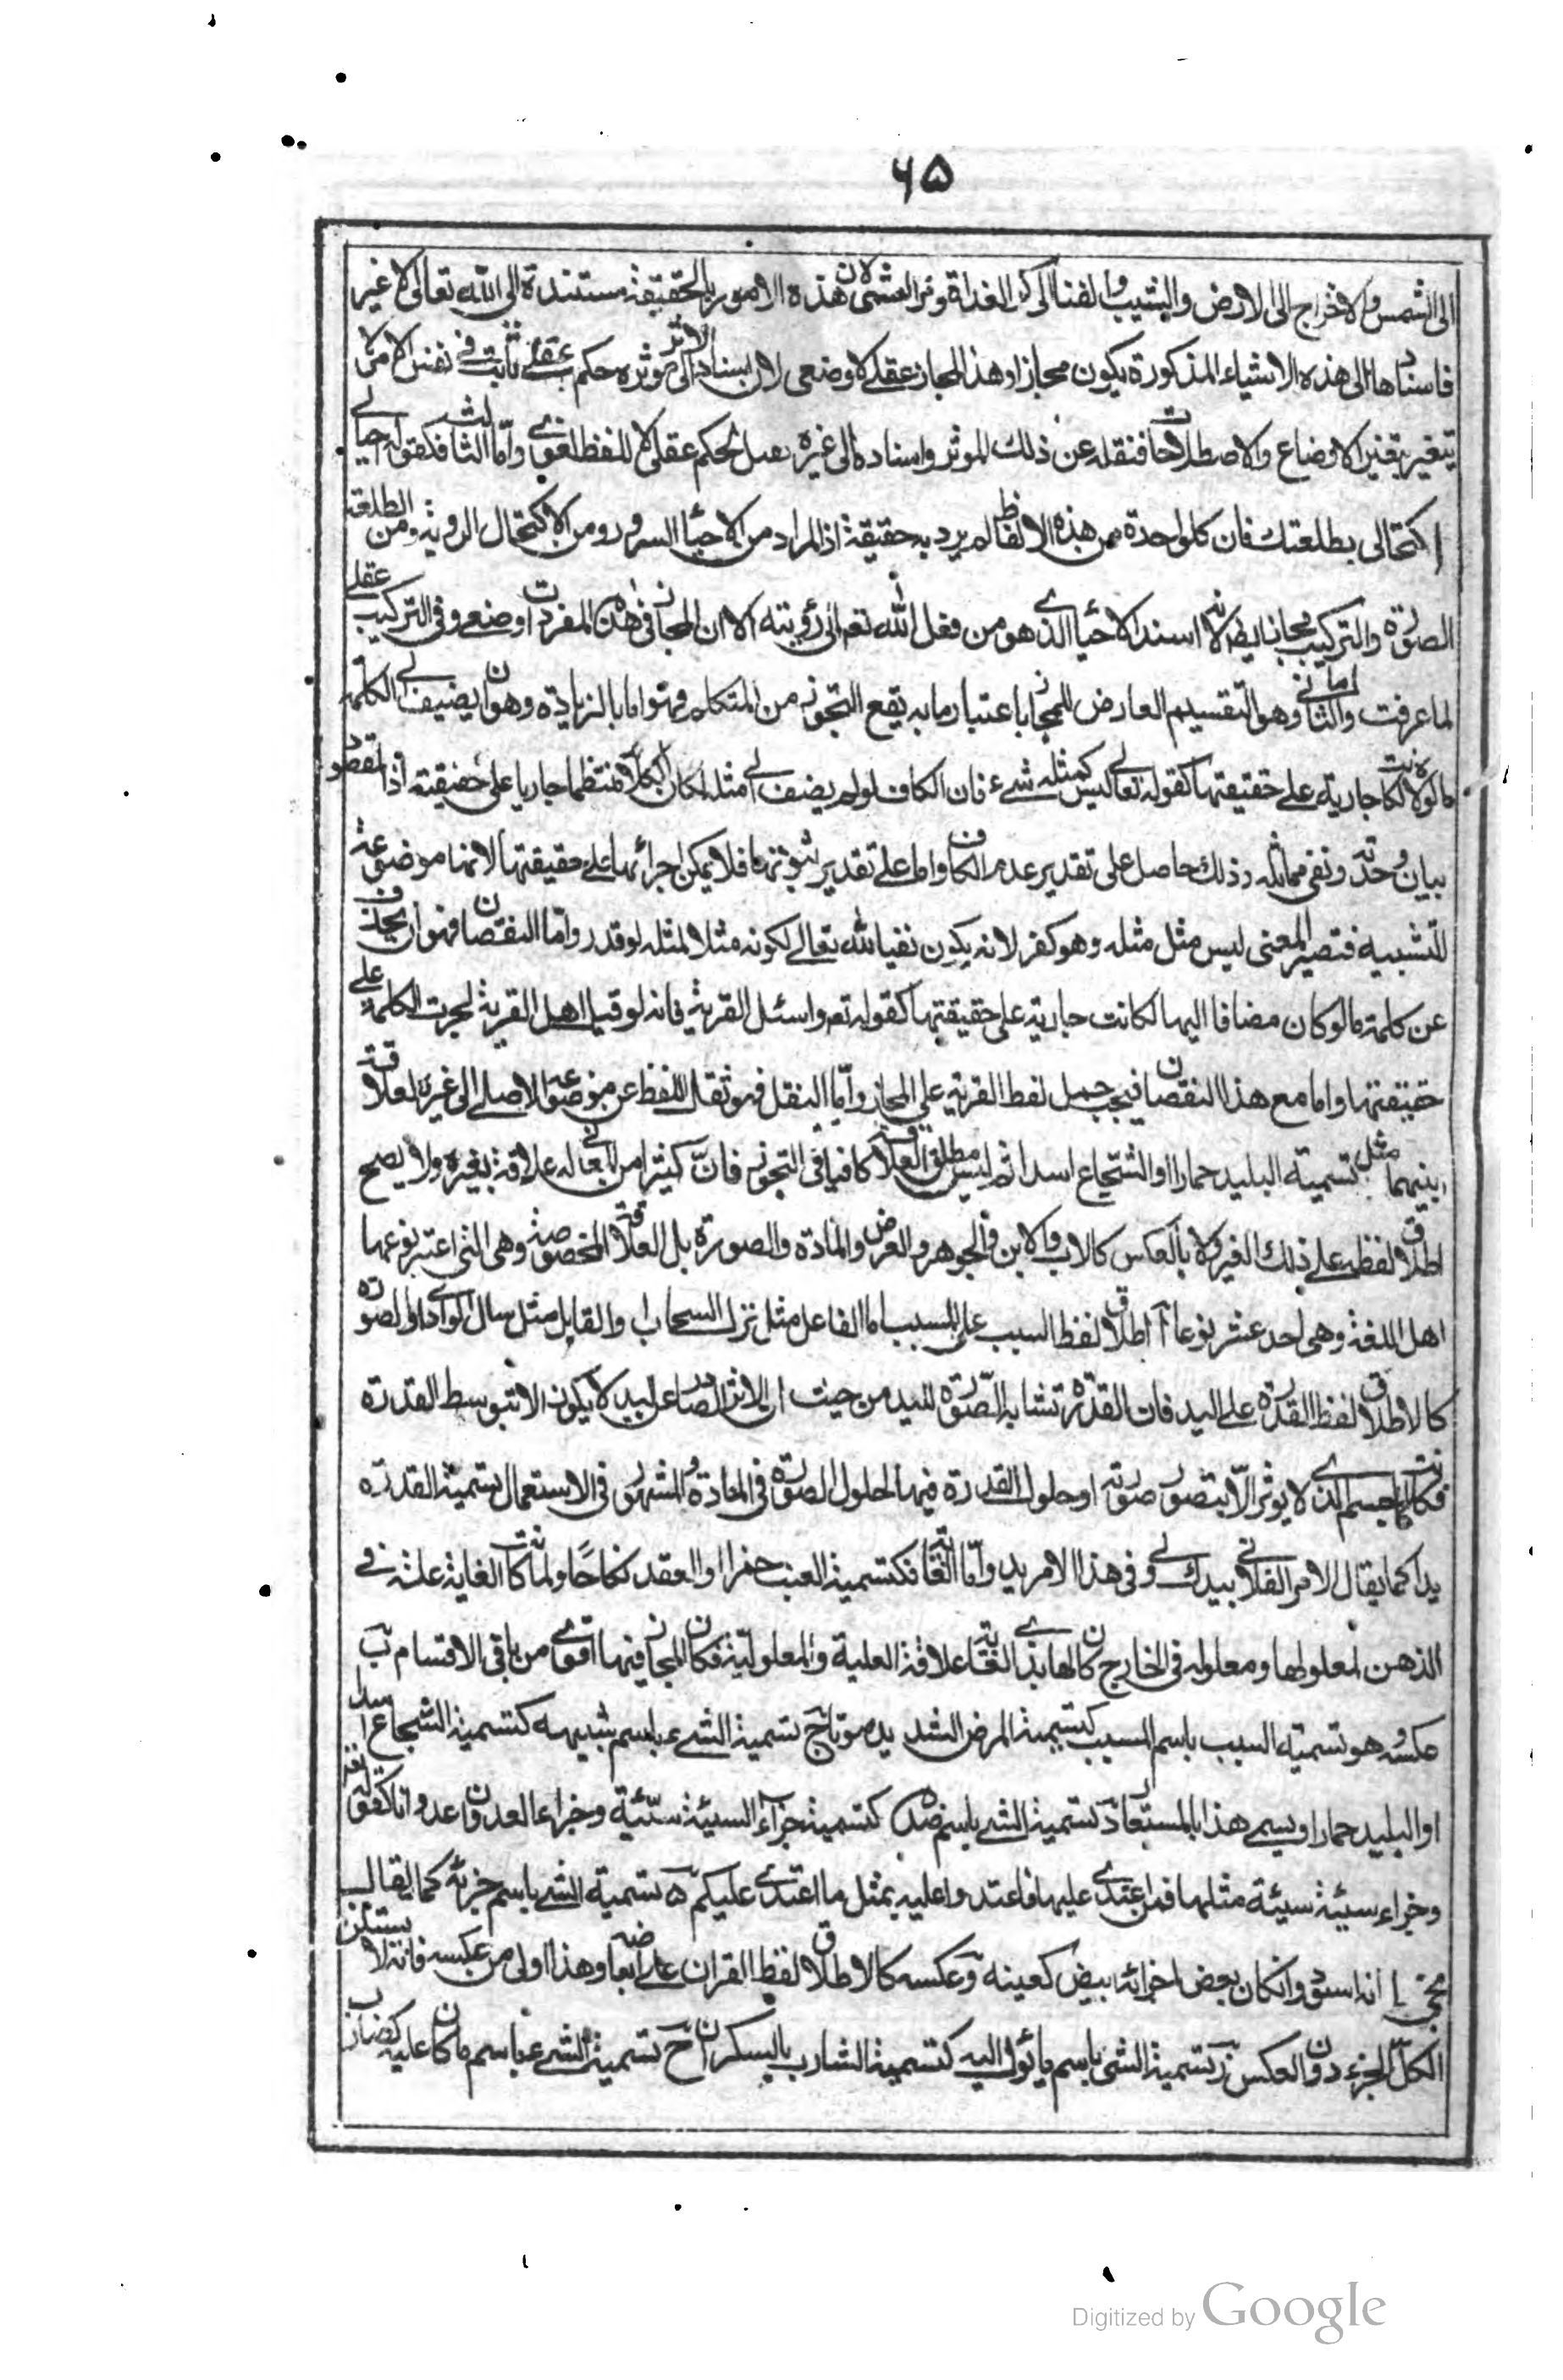 ٦٥
الى الشمس والاخراج الى الارض والتشيب والفناء الى كر الغداة ومر العشى لان هذه الامور بالحقيقة مستندة الى الله تعالى لا غير
فاسنادها الى هذه الاشياء المذكورة يكون مجازا وهذا المجاز عقلى لا وضعى لان اسناد الاثر الى موثره حكم عقلى ثابت فى نفس الامر لا
يتغير بتغير الاوضاع والاصطلاحات فنقله عن ذلك الموثر واسناده الى غيره نقل لحكم عقلى لا للفظ لغوى واما الثالث فكقوله احيانى
اكتحالى بطلعتك فان كل واحدة من هذه الالفاظ لم يرد به حقيقة اذ المراد من الاحيا السرور ومن الاكتحال الروية ومن الطلعة
الصورة والتركيب مجاز ايضا لانه اسند الاحيا الذى هو من فعل الله تعم الى رؤيته الا ان المجاز فى هذه المفردات وضعى وفى التركيب عقلى
لما عرفت والثانى وهو التقسيم العارض للمجاز باعتبار ما به يقع التجوز من المتكلم فهو اما بالزيادة وهو ان يضيف الى الكلمة
ما لولاه لكانت جارية على حقيقتها كقوله تعالى ليس كمثله شىء فان الكاف لو لم يضف الى مثله لكان الكلام منتظما جاريا على حقيقته اذ المقصود
بيان وحدته ونفى مماثله وذلك حاصل على تقدير عدم الكاف واما على تقدير ثبوتها فلا يمكن اجرائها على حقيقتها لانها موضوعة
للتشبيه فتصير المعنى ليس مثل مثله وهو كفر لانه يكون نفيا لله تعالى لكونه مثلا لمثله لو قدر واما النقصان فهو ان يحذف
عن كلمة ما لو كان مضافا اليها لكانت جارية على حقيقتها كقوله تعم واسئل القرية فانه لو قيل اهل القرية لجرت الكلمة على
حقيقتها واما مع هذا النقصان فيجب حمل لفظ القرية على المجاز واما النقل فهو نقل اللفظ عن موضوعه الاصلى الى غيره لعلاقة
بينهما مثل تسمية البليد حمارا او الشجاع اسدا ثم ليس مطلق العلاقة كافيا فى التجوز فان كثيرا من المعانى له علاقة بغيره ولا يصح
اطلاق لفظه على ذلك الغير ولا بالعكس كالاب والابن والجوهر والعرض والمادة والصورة بل العلاقة المخصوصة وهى التى اعتبر نوعها
اهل اللغة وهى احد عشر نوعا آ اطلاق لفظ السبب على المسبب اما الفاعل مثل نزل السحاب والقابل مثل سال الوادى او الصورة
كالاطلاق لفظ القدرة على اليد فان القدرة تشابه الصورة لليد من حيث ان الاثر الصادر عن اليد لا يكون الا بتوسط القدرة
فكانت كالجسم الذى لا يوثر الا بتصور صورته او حلول القدرة فيها لحلول الصورة فى المادة والمشهور فى الاستعمال تسمية القدرة
يدا كما يقال الامر الفلانى بيدك ولى فى هذا الامر يد واما الغائية فكتسمية العنب خمرا والعقد نكاحًا ولما كانت الغاية علة فى
الذهن لمعلولها ومعلوله فى الخارج كان لها بذى الغاية علاقة العلية والمعلولية فكان المجاز فيها اقوى من باقى الاقسام ب
عكسه هو تسمية السبب باسم المسبب كتسمية المرض الشديد موتا ج تسمية الشىء باسم شبيهه كتسمية الشجاع اسدا
او البليد حمارا ويسمى هذا بالمستعار د تسمية الشى باسم ضده كتسمية جزاء السيئة سيئة وجزاء العدوان عدوانا كقوله تعم
وجزاء سيئة سيئة مثلها فمن اعتدى عليها فاعتدوا عليه بمثل ما اعتدى عليكم ه تسمية الشى باسم جزئه كما يقال
انه اسود وانكان بعض اجزائه بيض كعينه و عكسه كالاطلاق لفظ القران على ابعاضه وهذا اولى من عكسه فانه لا يستلزم
الكل الجزء دون العكس ز تسمية الشى باسم ما يئول اليه كتسمية الشارب بالسكران ح تسمية الشىء باسم ما كان عليه كضارب
Digitized by Google